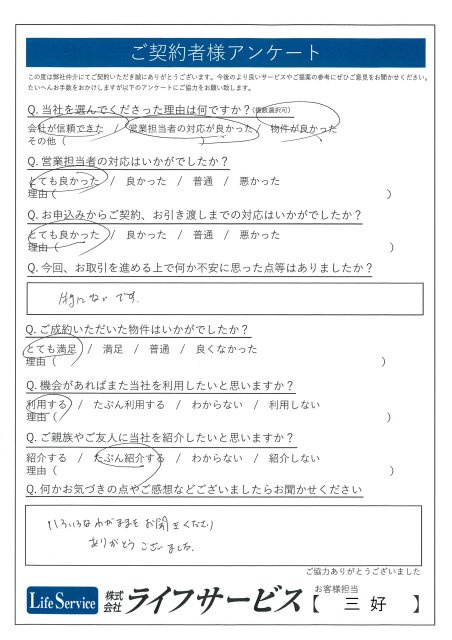 ご契約者様アンケート
この度は弊社仲介にてご契約いただき誠にありがとうございます。今後のより良いサービスやご提案の参考にぜひご意見をお聞かせください。
たいへんお手数をおかけしますが以下のアンケートにご協力をお願い致します。
Q. 当社を選んでくださった理由は何ですか？(複数選択可)
会社が信頼できた / 営業担当者の対応が良かった / 物件が良かった
その他 ( )
Q. 営業担当者の対応はいかがでしたか？
とても良かった / 良かった / 普通 / 悪かった
理由 ( )
Q. お申込みからご契約、お引き渡しまでの対応はいかがでしたか？
とても良かった / 良かった / 普通 / 悪かった
理由 ( )
Q. 今回、お取引を進める上で何か不安に思った点等はありましたか？
特にないです.
Q. ご成約いただいた物件はいかがでしたか？
とても満足 / 満足 / 普通 / 良くなかった
理由 ( )
Q. 機会があればまた当社を利用したいと思いますか？
利用する / たぶん利用する / わからない / 利用しない
理由 ( )
Q. ご親族やご友人に当社を紹介したいと思いますか？
紹介する / たぶん紹介する / わからない / 紹介しない
理由 ( )
Q. 何かお気づきの点やご感想などございましたらお聞かせください
いろいろなわがままをお聞きください
ありがとうございました.
ご協力ありがとうございました
Life Service 株式会社 ライフサービス
お客様担当
【 三 好 】